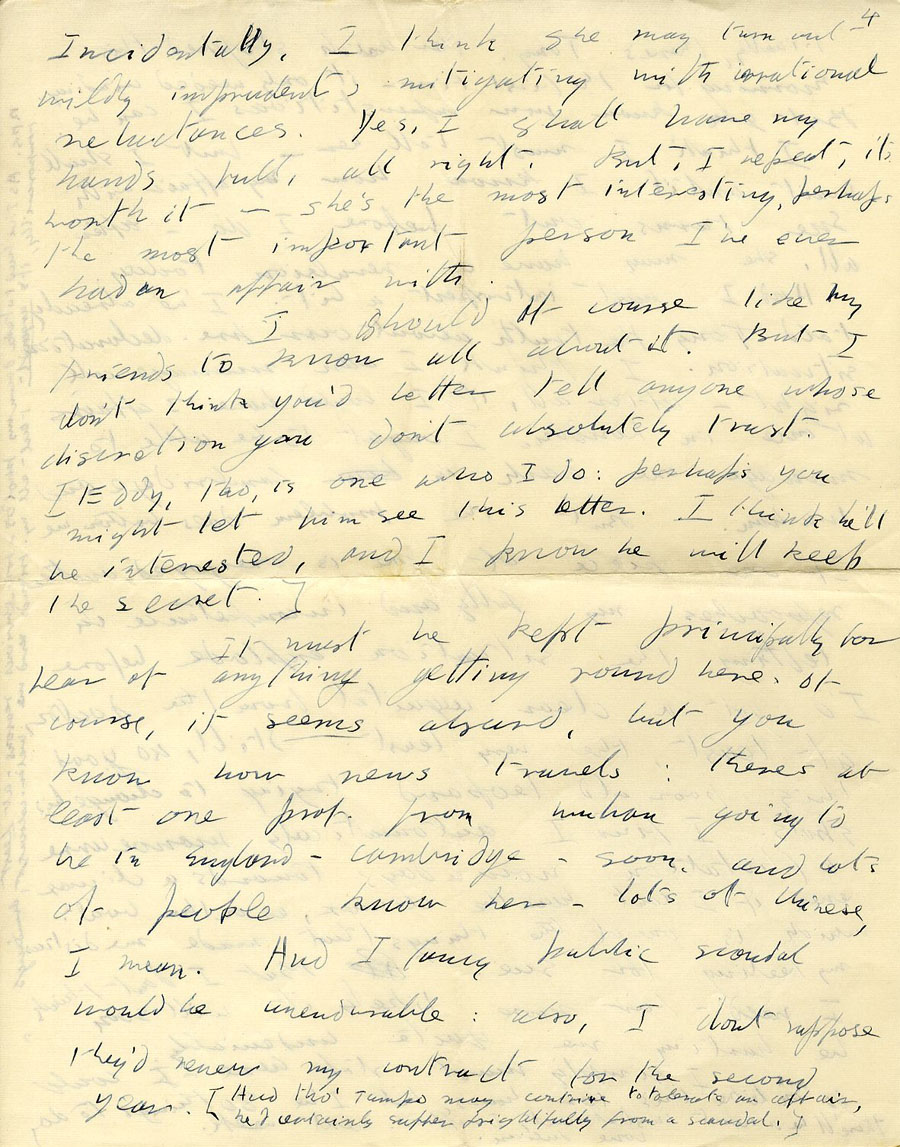 4
Incidentally, I think she may turn out
wildly imprudent, mitigating with irrational
reluctances. Yes, I shall have my
hands full, all right. But, I repeat, its
worth it – she's the most interesting, perhaps
the most important person I've ever
had an affair with.
I should of course like my
friends to know all about it. But I
don't think you'd better tell anyone whose
discretion you don't absolutely trust.
[Eddy, tho, is one who I do: perhaps you
might let him see this letter. I think he'll
be interested, and I know he will keep
the secret.]
It must be kept principally for
fear of anything getting round here. Of
course, it seems absurd, but you
know how news travels: theres at
least one prof. from wuhan going to
be in England – Cambridge – soon. and lots
of people know her – lots of Chinese,
I mean. And I fancy public scandal
would be unendurable: also, I dont suppose
they'd renew my contract for the second
year. [And tho' Tampo may contrive to tolerate an affair,
he'd certainly suffer frightfully from a scandal.]